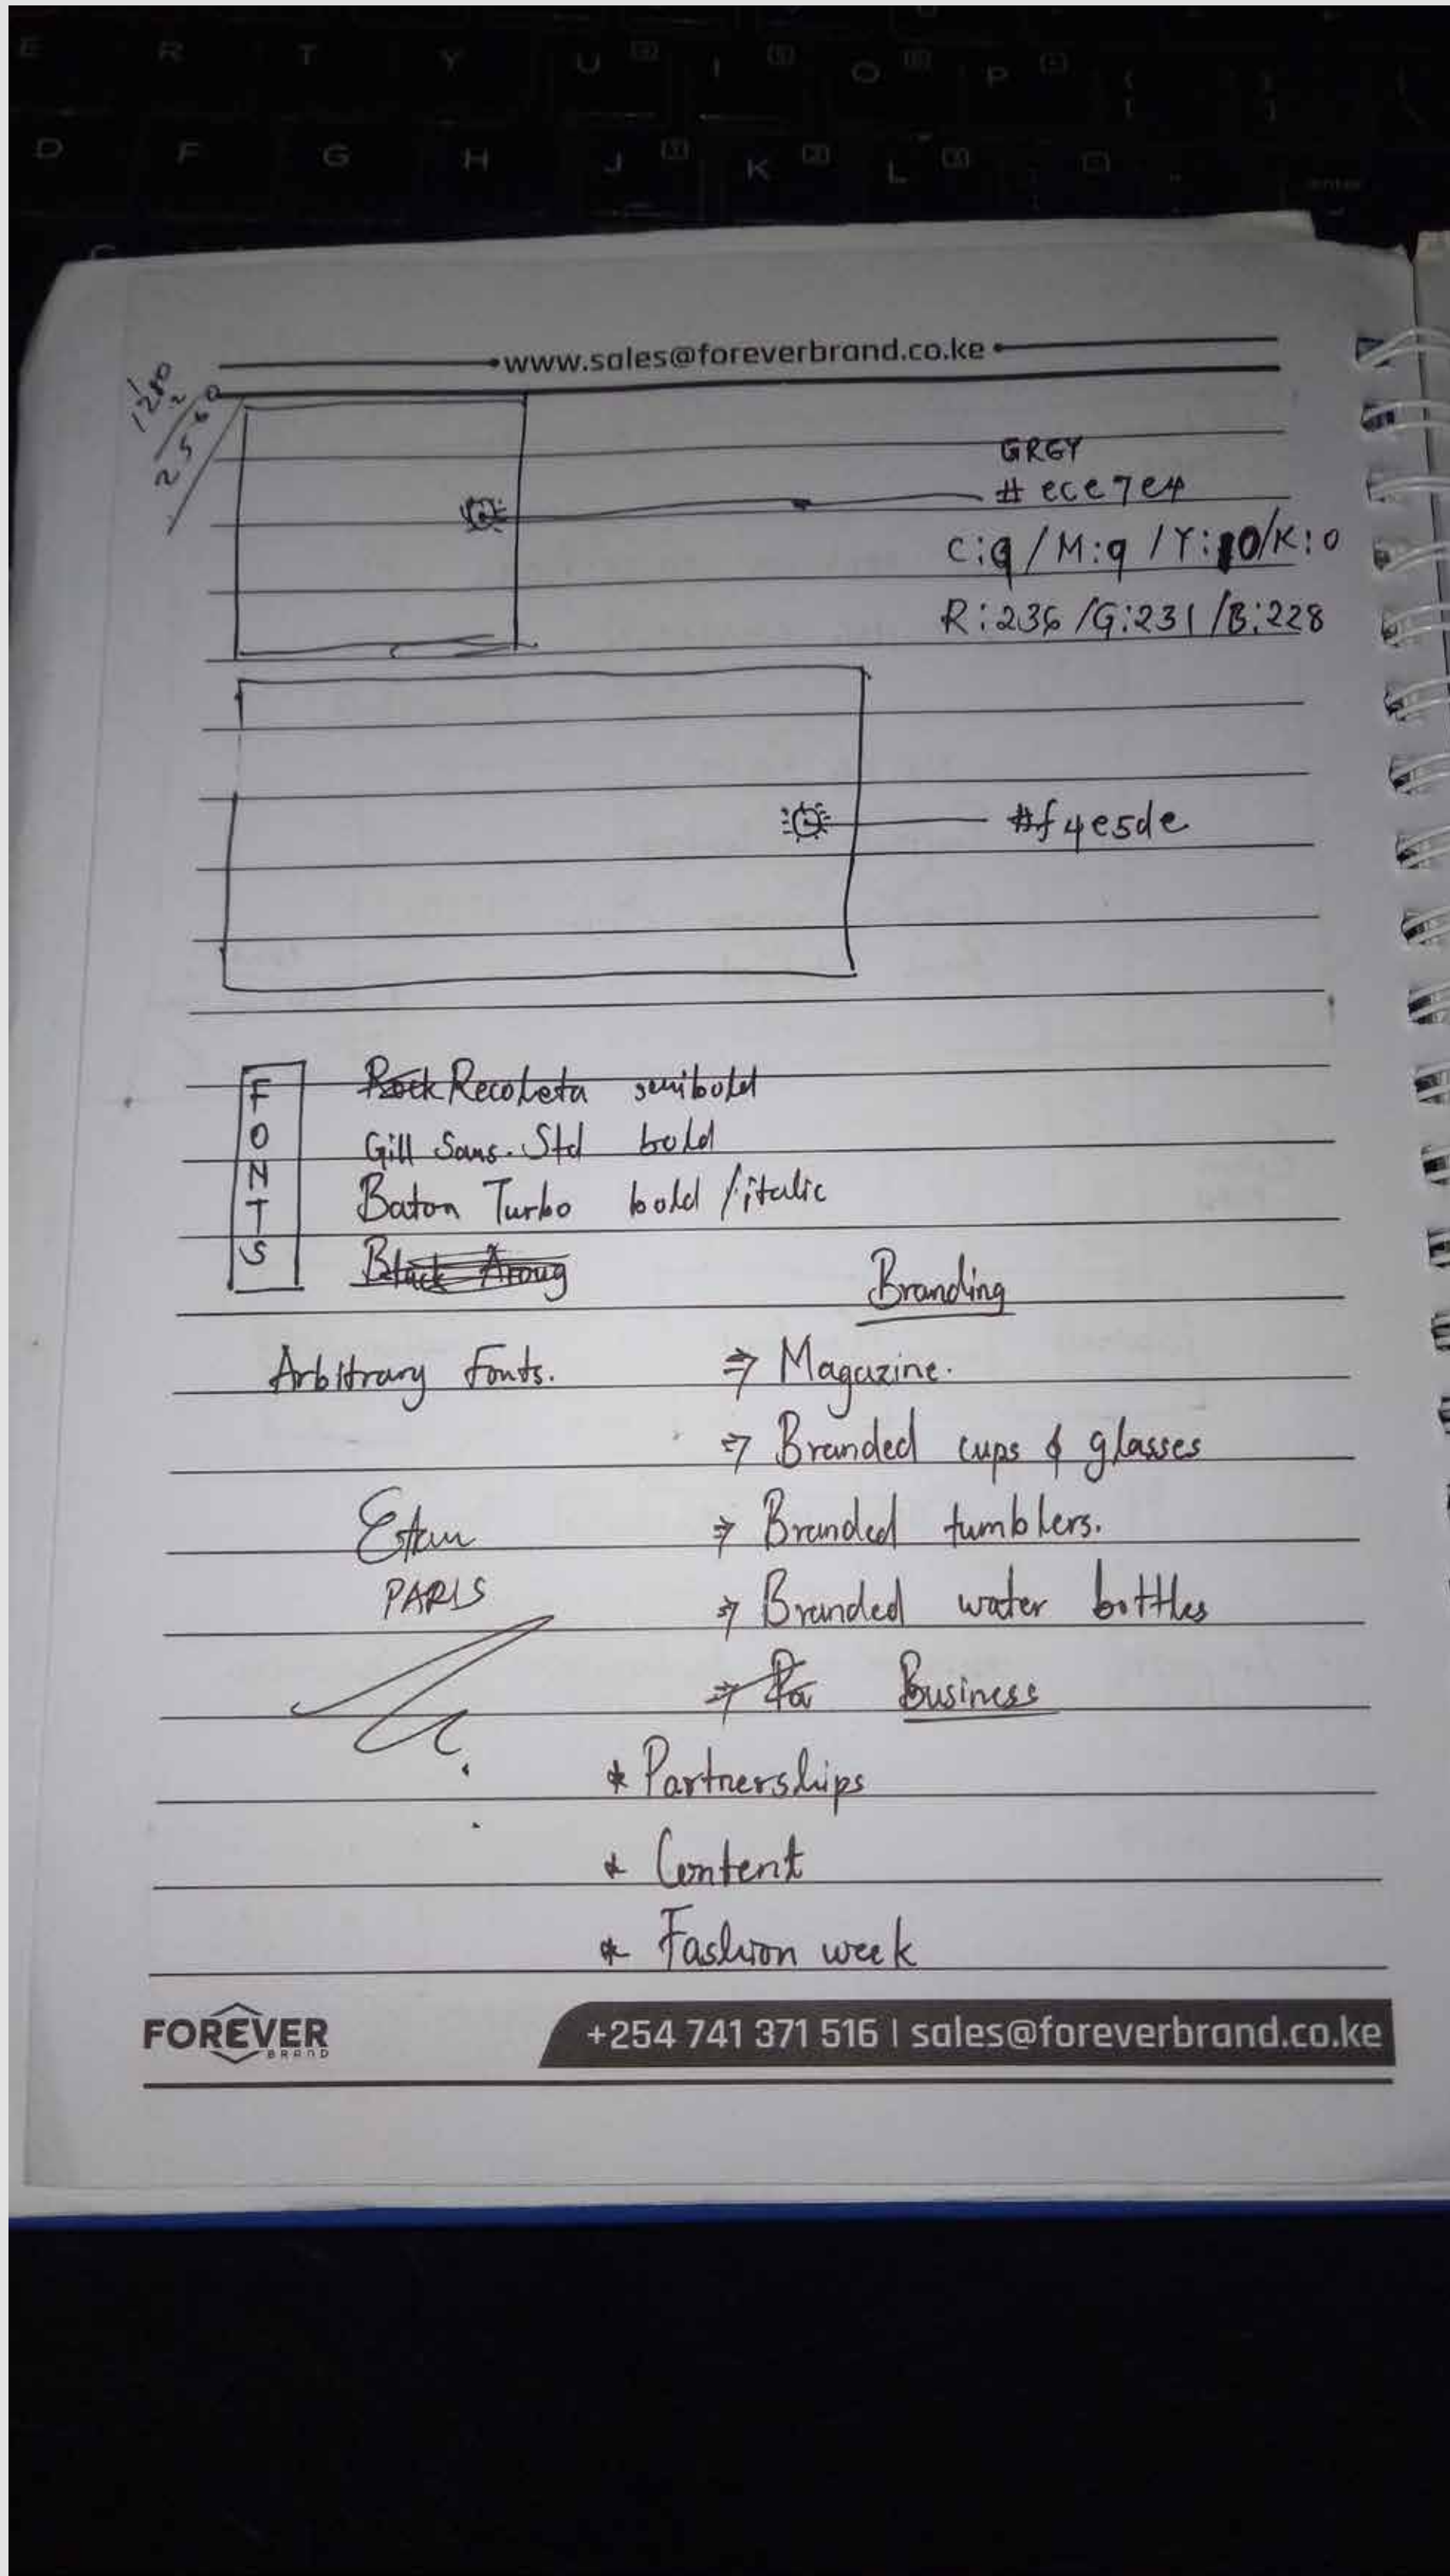 E R T Y U I O P
D F G H J K L
enter
www.sales@foreverbrand.co.ke
1280
2
2560
GREY
# ece7e4
C:9/M:9/Y:10/K:0
R:236/G:231/B:228
#f4e5de
FONTS
Rock Recoleta semibold
Gill Sans. Std bold
Baton Turbo bold/italic
Black
Branding
Arbitrary Fonts.
⇒ Magazine.
⇒ Branded cups & glasses
Etam
⇒ Branded tumblers.
PARIS
⇒ Branded water bottles
⇒ Business
* Partnerships
* Content
* Fashion week
FOREVER
BRAND
+254 741 371 516 | sales@foreverbrand.co.ke